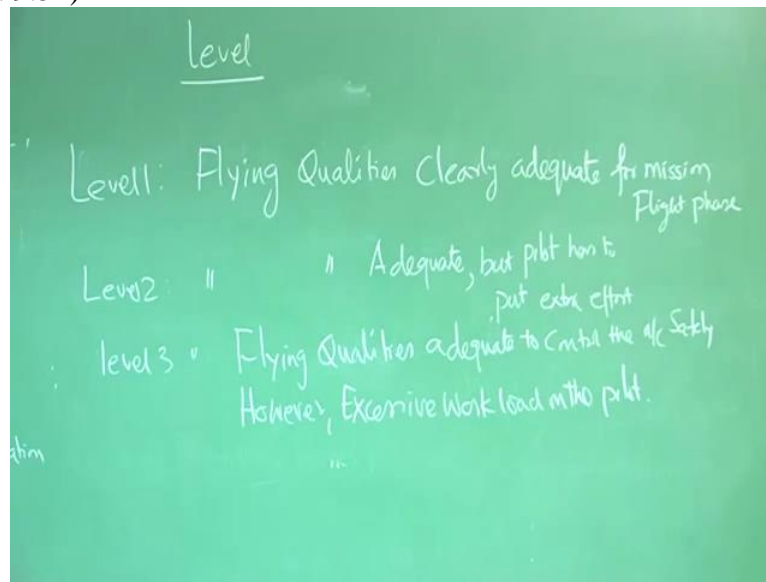 Level
Level1: Flying Qualities Clearly adequate for mission
Flight phase
Level2: " " Adequate, but pilot has to
put extra effort
level 3 " Flying Qualities adequate to Control the a/c Safely
However, Excessive Work load on the pilot.